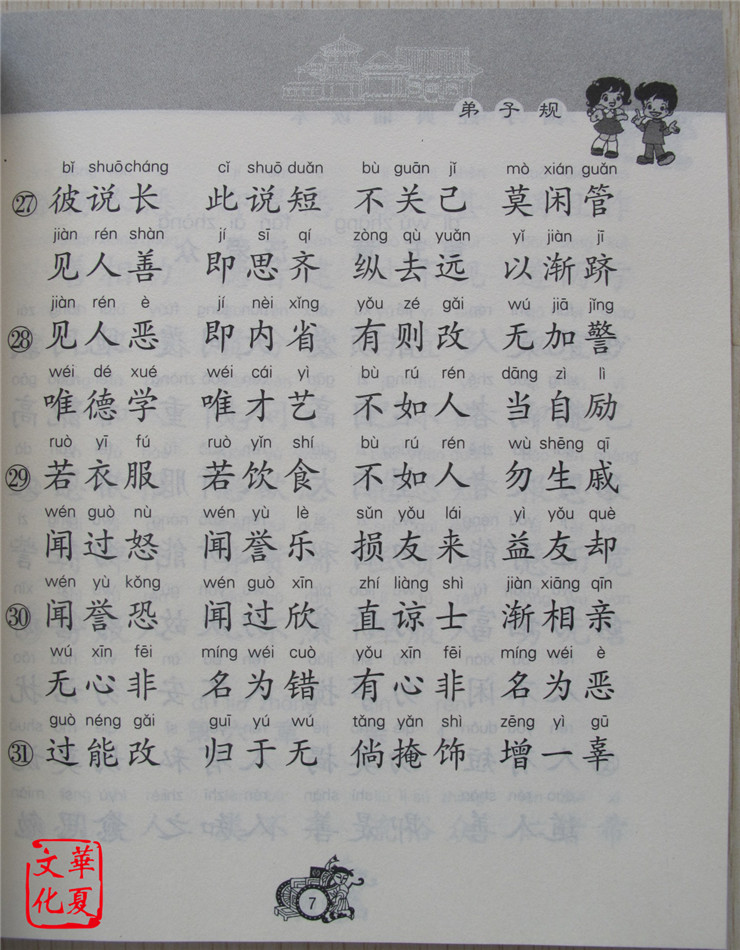 弟子规
bǐ shuō cháng cǐ shuō duǎn bù guān jǐ mò xián guǎn
㉗ 彼说长 此说短 不关己 莫闲管
jiàn rén shàn jí sī qí zòng qù yuǎn yǐ jiàn jī
见人善 即思齐 纵去远 以渐跻
jiàn rén è jí nèi xǐng yǒu zé gǎi wú jiā jǐng
㉘ 见人恶 即内省 有则改 无加警
wéi dé xué wéi cái yì bù rú rén dāng zì lì
唯德学 唯才艺 不如人 当自励
ruò yī fú ruò yǐn shí bù rú rén wù shēng qī
㉙ 若衣服 若饮食 不如人 勿生戚
wén guò nù wén yù lè sǔn yǒu lái yì yǒu què
闻过怒 闻誉乐 损友来 益友却
wén yù kǒng wén guò xīn zhí liàng shì jiàn xiāng qīn
㉚ 闻誉恐 闻过欣 直谅士 渐相亲
wú xīn fēi míng wéi cuò yǒu xīn fēi míng wéi è
无心非 名为错 有心非 名为恶
guò néng gǎi guī yú wú tǎng yǎn shì zēng yì gū
㉛ 过能改 归于无 倘掩饰 增一辜
7
華夏
文化